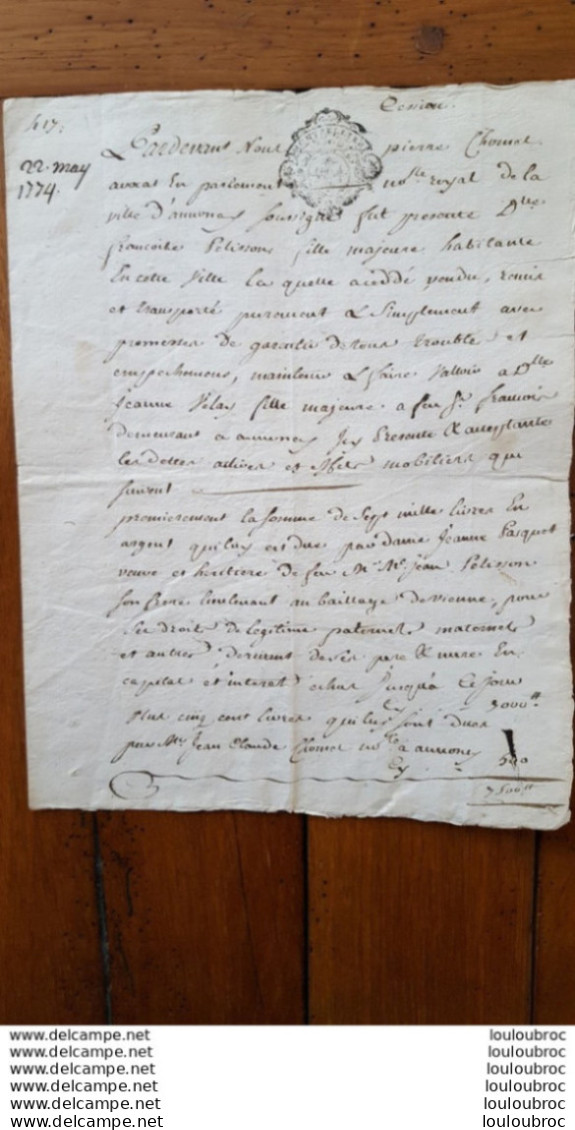 Cession.
417.
22. may
1774.
Pardevant Nous pierre Chomel
avocat En parlement no.re royal de la
ville d'annonay soussigné fut presente D.lle
francoise Pelisson fille majeure habitante
En cette Ville la quelle a ceddé vendu, remis
et transporté purement & Simplement avec
promesses de garentie de tous trouble et
empechemens, maintenir & faire Valloir a D.lle
Jeanne Velay fille majeure a feu S.r francois
demeurant a annonay Icy Presente & acceptante
les dettes actives et effets mobiliers qui
suivent
premierement la somme de Sept mille livres En
argent qui luy est due par dame Jeanne Pasquet
veuve et heritiere de feu M.e Jean Pelisson
son frere lieutenant au bailliage de vienne, pour
ses droits de legitime paternels maternels
et autres derivent de ses pere & mere En
capital et interet echus Jusqu'a Ce jour
Cy 7000.tt
Plus cinq cent livres qui luy sont dues
par M.e Jean Claude Chomel no.re a annonay
Cy 500
7500.tt
www.delcampe.net louloubroc
www.delcampe.net louloubroc
www.delcampe.net louloubroc
www.delcampe.net louloubroc
www.delcampe.net louloubroc
www.delcampe.net louloubroc